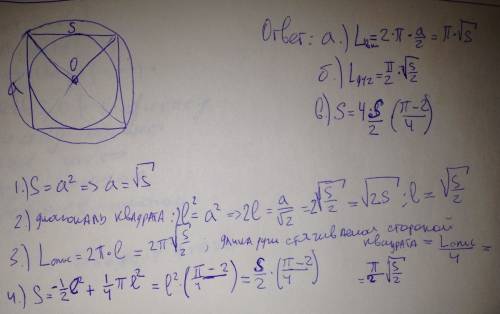 S
O
a
Ответ: а.) Lвпис=2·π·a/2=π·√S
б.) Lдуг=π/2·√(S/2)
в) S=4·S/2 (π-2/4)
1.) S=a² => a=√S
2.) диагональ квадрата: 2l²=a² => 2l=a/√2=2√(S/2)=√2S; l=√(S/2)
3.) Lопис=2π·l=2π√(S/2); длина дуги стягиваемой стороной квадрата=Lопис/4=
=π/2√(S/2)
4.) S=-1/2l²+1/4πl²=l²·(π-2/4)=S/2·(π-2/4)